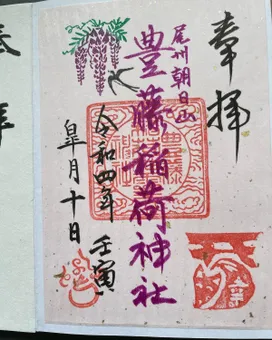 奉拝
尾州朝日山
豊藤稲荷神社
令和四年 壬寅
皐月十日